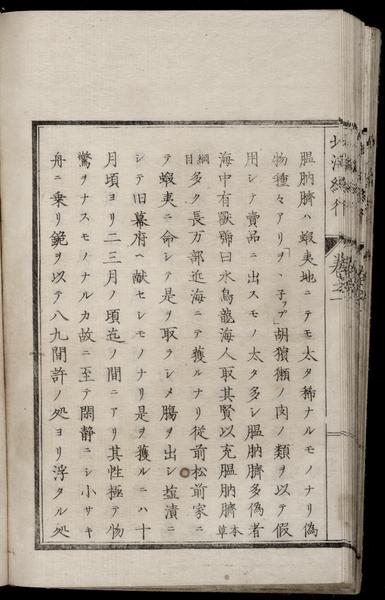 膃肭臍ハ蝦夷地ニテモ太タ稀ナルモノナリ偽
物種々アリ「ヲヽ子ツプ」胡獱獺ノ肉ノ類ヲ以テ假
用シテ賣品ニ出スモノ太タ多シ膃肭臍多偽者
海中有獸號曰水烏龍海人取其腎以充膃肭臍本草
綱目多ク長万部近海ニテ獲ルナリ従前松前家ニ
テ蝦夷ニ命シテ是ヲ取ラシメ腸ヲ出シ塩漬ニ
シテ旧幕府ヘ献セシモノナリ是ヲ獲ルニハ十
月頃ヨリ二三月ノ頃迄ノ間ニアリ其性極テ物
驚ヲナスモノナルカ故ニ至テ閑静ニシ小サキ
舟ニ乗リ銃ヲ以テ八九間許ノ処ヨリ浮タル処
卷之二